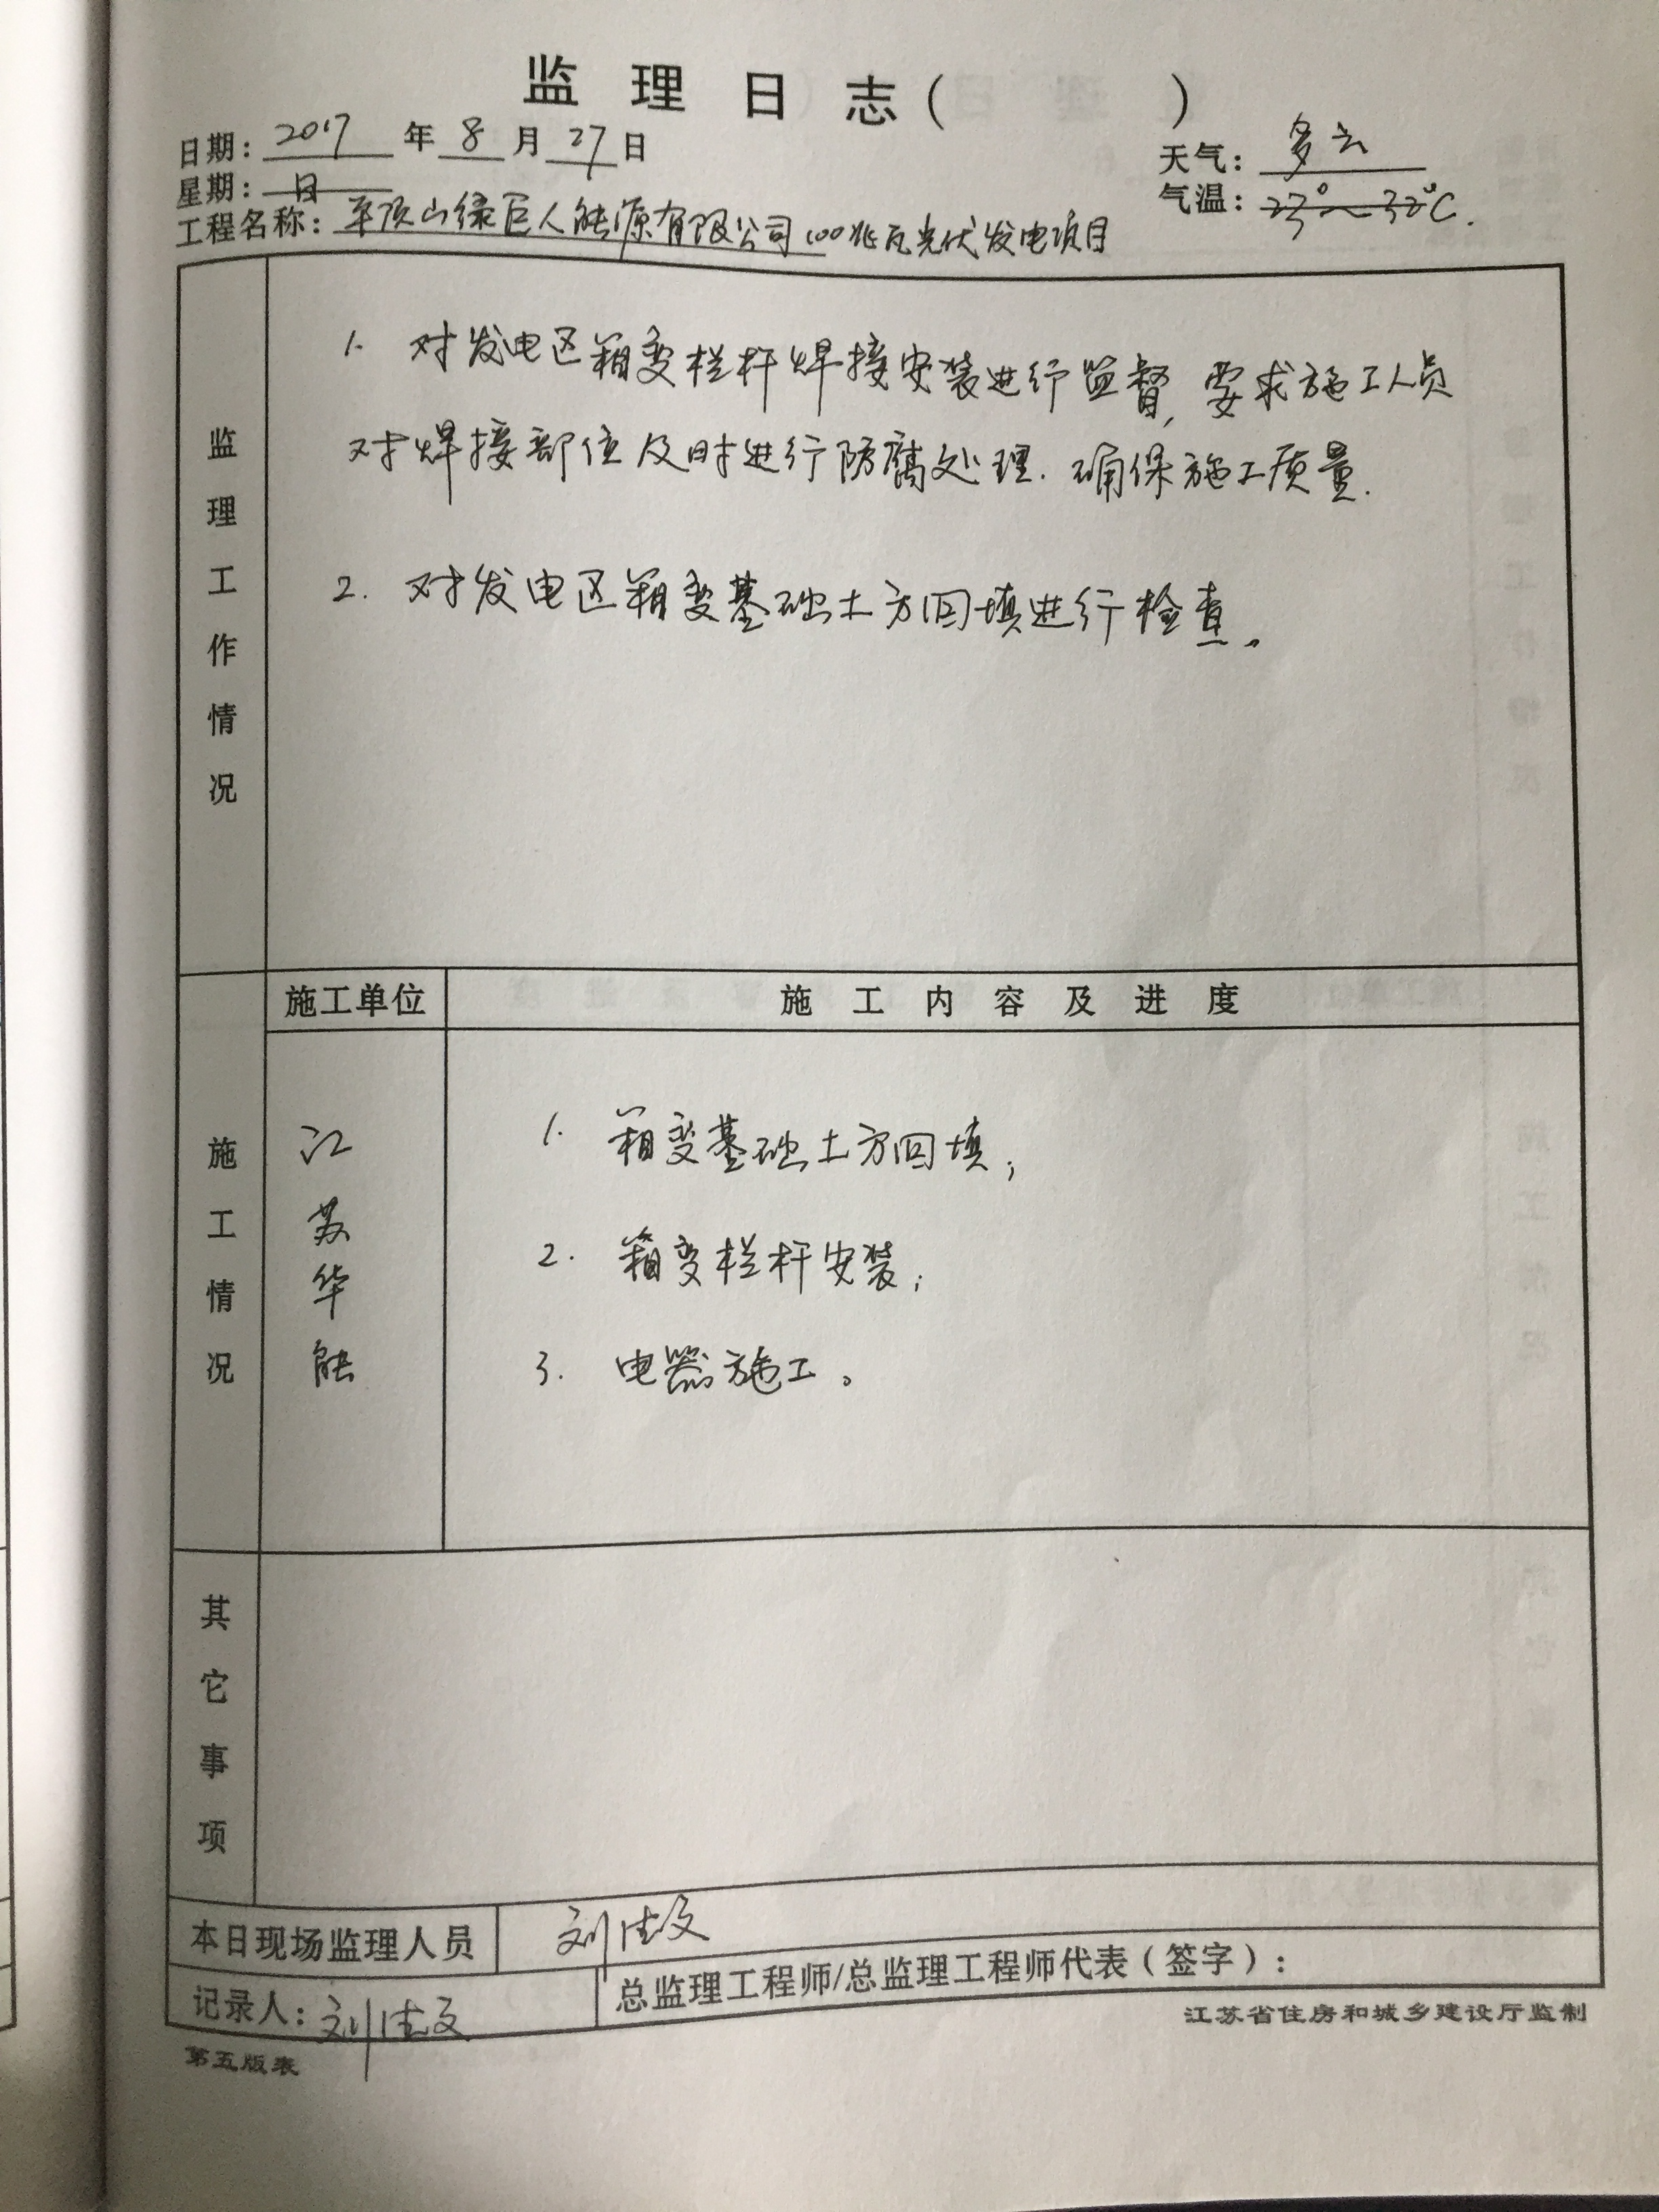 监理日志(          )
日期：2017年8月27日
天气：多云
星期：日
气温：23°～32°C.
工程名称：平顶山绿巨人能源有限公司100兆瓦光伏发电项目
监理工作情况
1. 对发电区箱变栏杆焊接安装进行监督,要求施工人员
对焊接部位及时进行防腐处理.确保施工质量.
2. 对发电区箱变基础土方回填进行检查。
施工情况
施工单位
施工内容及进度
江苏华能
1. 箱变基础土方回填;
2. 箱变栏杆安装;
3. 电器施工。
其它事项
本日现场监理人员 刘
记录人：刘
总监理工程师/总监理工程师代表(签字)：
江苏省住房和城乡建设厅监制
第五版表